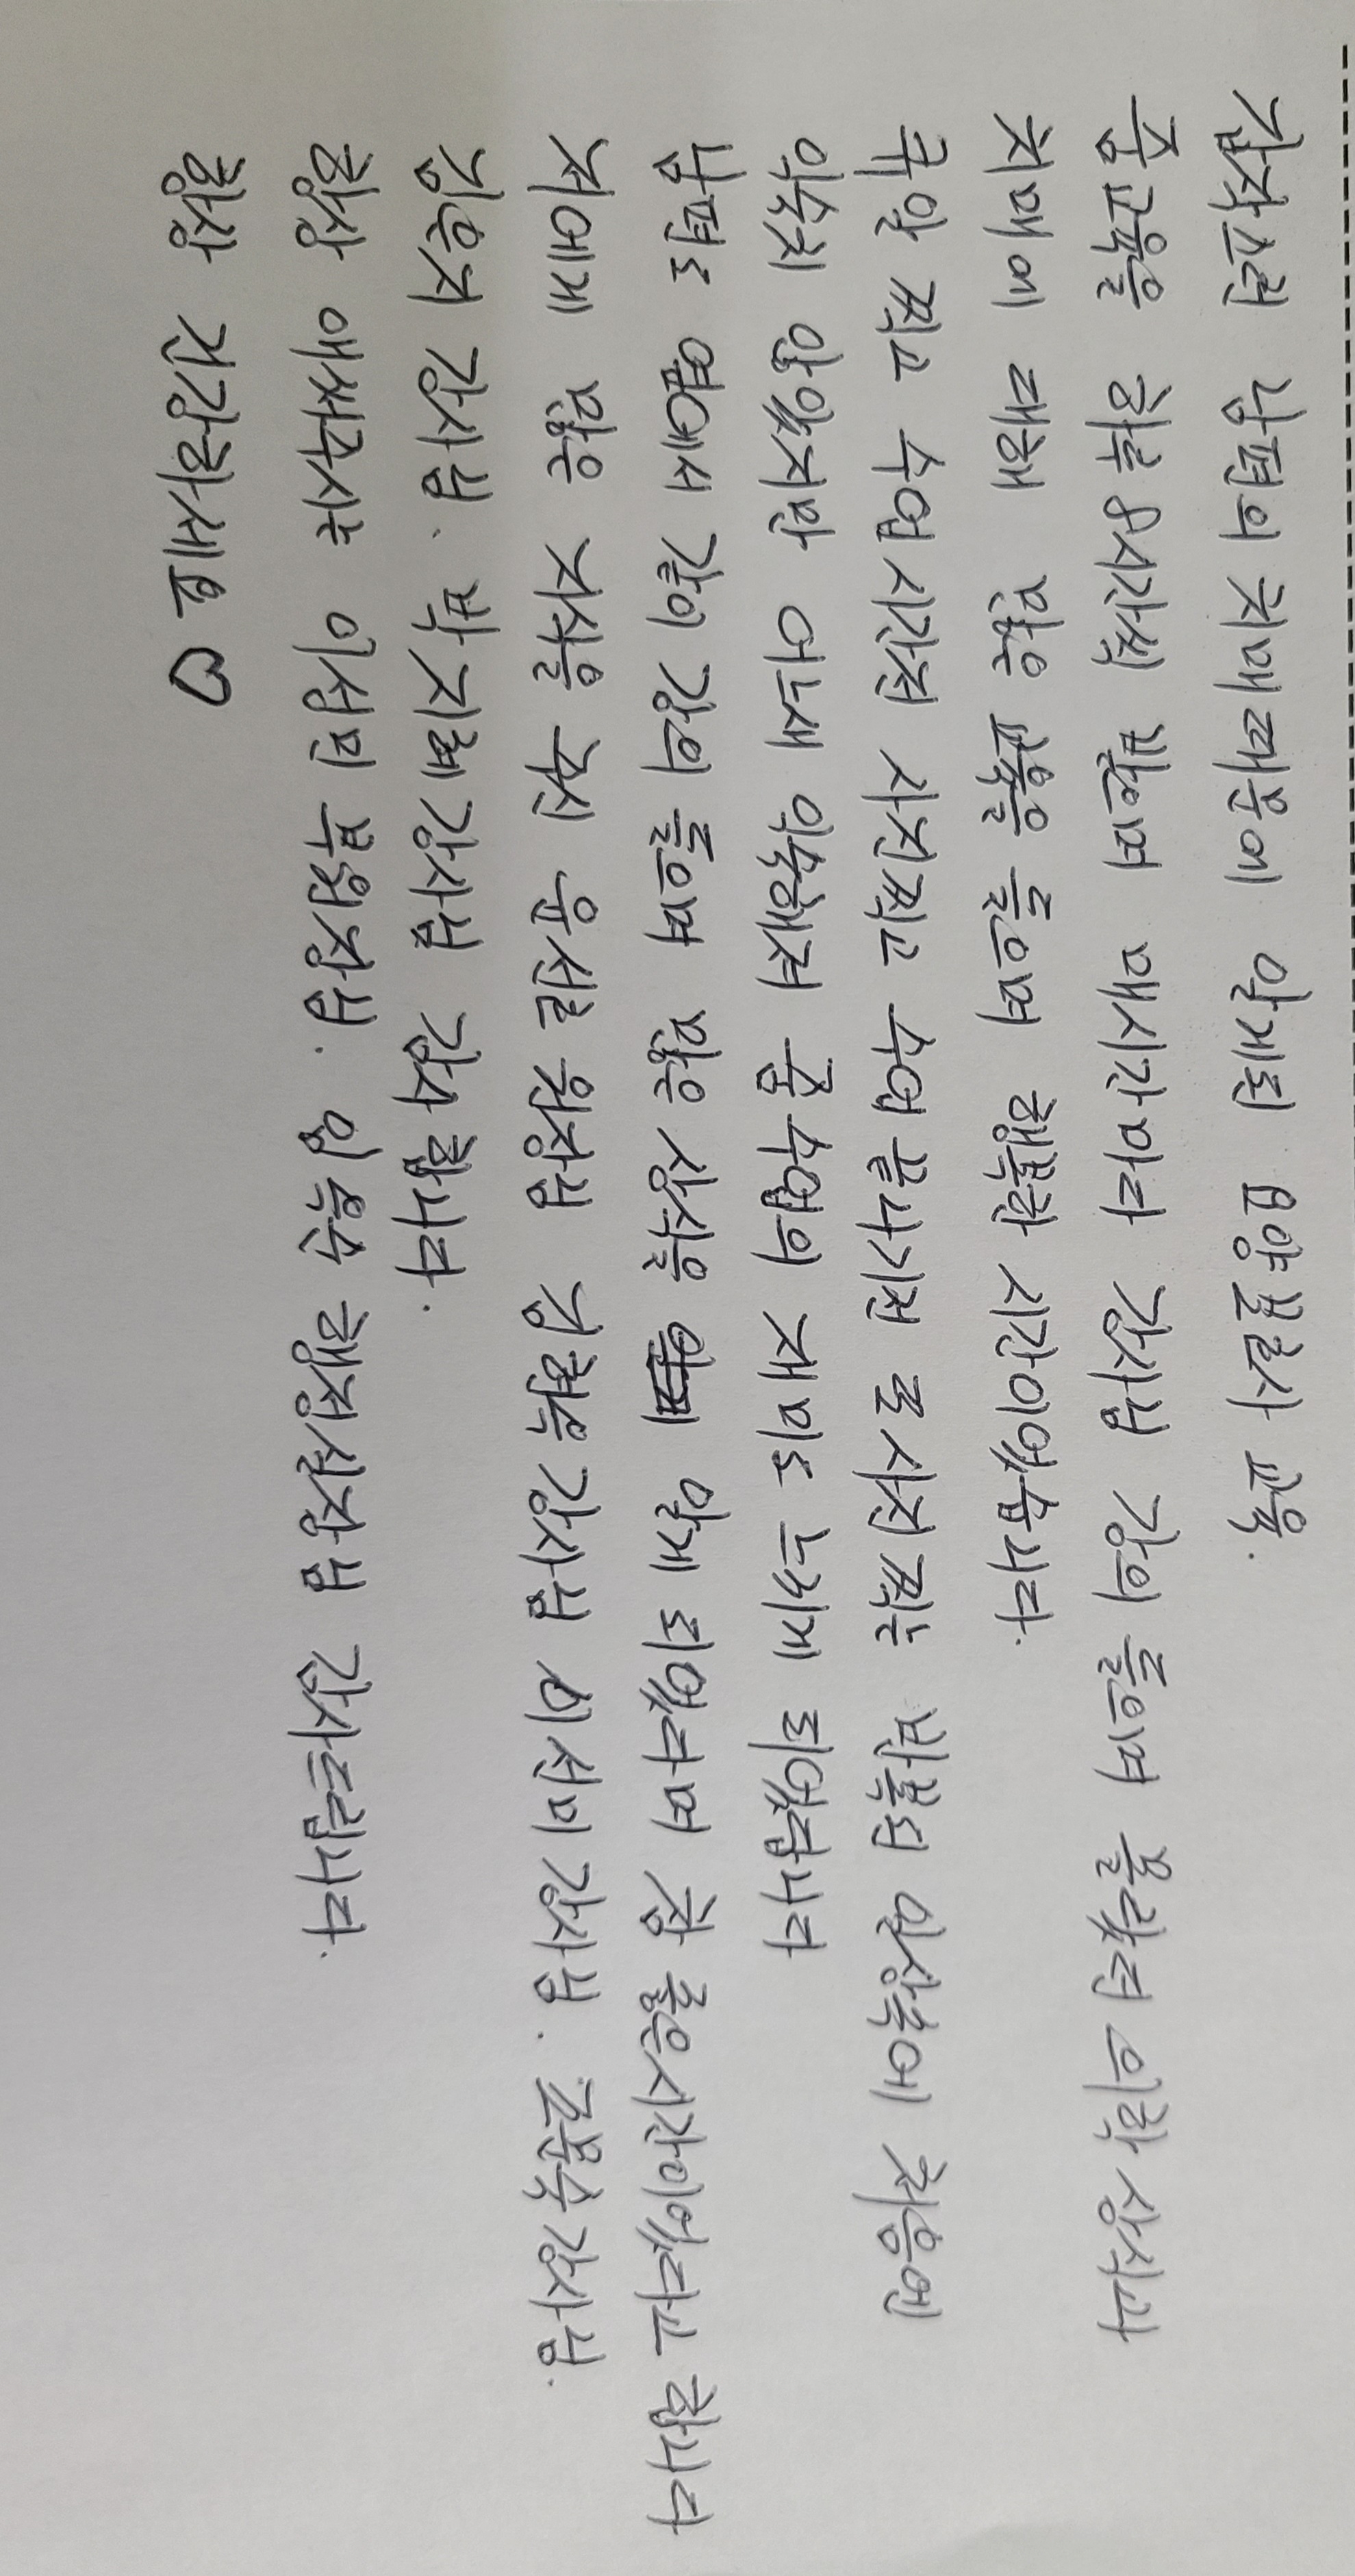 갑작스런 남편의 치매 때문에 알게된 요양보호사 교육.
줌교육을 하루 8시간씩 받으며 매시간마다 강사님 강의 들으며 몰랐던 의학 상식과
치매에 대해 많은 교육을 들으며 행복한 시간이었습니다.
큐알 찍고 수업시간전 사진찍고 수업 끝나기전 또 사진찍는 반복된 일상속에 처음엔
익숙치 않았지만 어느새 익숙해져 줌 수업의 재미도 느끼게 되었답니다
남편도 옆에서 같이 강의 들으며 많은 상식을 알게 되었다며 참 좋은시간이었다고 합니다
저에게 많은 지식을 주신 유선료 원장님 경혜숙 강사님 이선미 강사님. 고복수 강사님.
김은지 강사님. 박지혜 강사님 감사 합니다.
항상 애써주시는 이성민 부원장님. 임옥순 행정실장님 감사드립니다.
항상 건강하세요 ♡